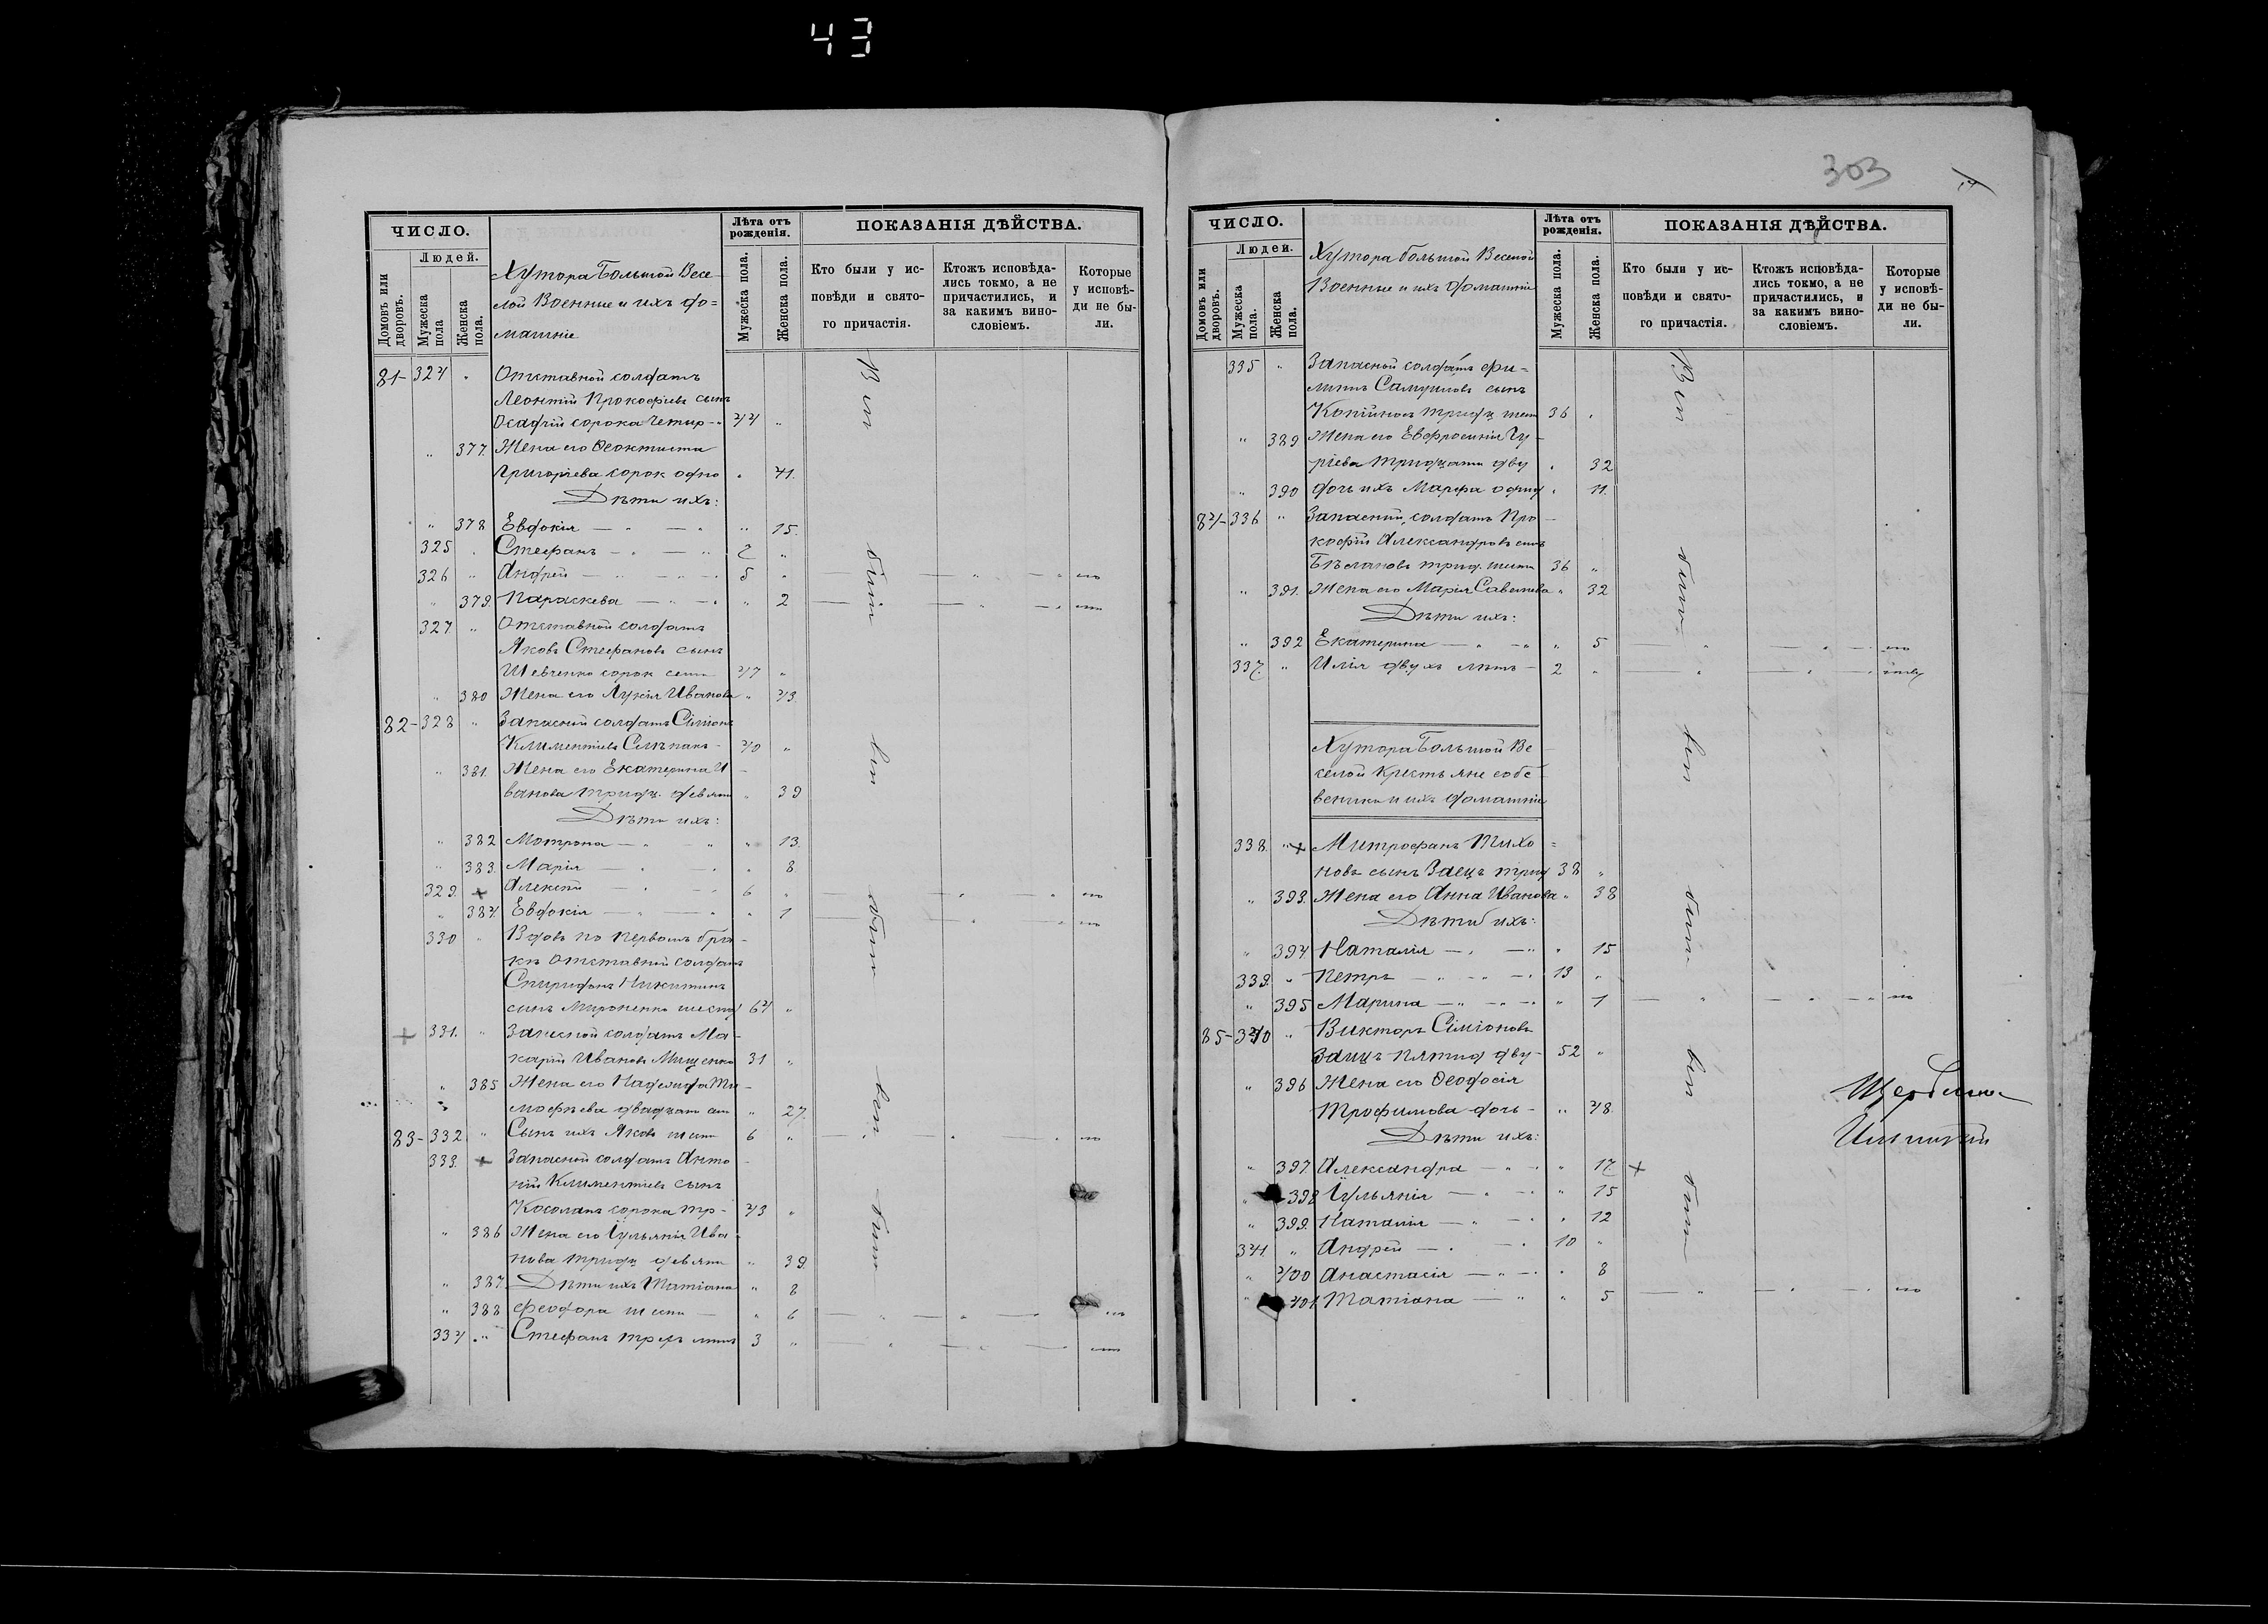 43
303
ЧИСЛО.
Людей.
Домовъ или дворовъ.
Мужеска пола
Женска пола.
Хутора Большой Весе-
лой Военные и ихъ до=
машніе
Лѣта отъ рожденія.
Мужеска пола.
Женска пола.
ПОКАЗАНІЯ ДѢЙСТВА.
Кто были у ис-
повѣди и свято-
го причастія.
Ктожъ исповѣда-
лись токмо, а не
причастились, и
за какимъ вино-
словіемъ.
Которые
у исповѣ-
ди не бы-
ли.
81- 324 " Отставной солдатъ
Леонтій Прокофіевъ сынъ
Осадчій сорока четыр- " 44 "
" 377. Жена его Ѳеоктиста
Григоріева сорок одно " 41.
Дѣти ихъ:
" 378 Евдокія — " — " " 15.
325 " Стефанъ — " — " 7 "
326 " Андрей — " — " 5 "
" 379. Параскева — " — " " 2
327. " Отставной солдатъ
Яковъ Стефановъ сынъ
Шевченко сорок семи 47 "
" 380 Жена его Лукія Иванова " 43.
82- 328 " Запасный солдатъ Сімеонъ
Климентіевъ Слѣпакъ - 40 "
" 381. Жена его Екатерина И-
ванова тридц. девяти " 39
Дѣти ихъ:
" 382 Мотрона — " — " " 13.
" 383. Марія — " — " " 8.
329. + Алексѣй — " — " 6 "
" 384. Евдокія — " — " " 1
330 " Вдовъ по первомъ бра-
кѣ Отставный солдатъ
Спиридонъ Никитинъ
сынъ Мироненко шестд 64 "
+ 331. " Запасной солдатъ Ма-
карій Ивановъ Мищенко 31 "
" 385 Жена его Надежда Ти-
мофѣева двадцати сем " 27.
83- 332 " Сынъ ихъ Яковъ шести 6 "
333. + Запасной солдатъ Анто-
ній Климентіевъ сынъ
Косолапъ сорока тр- 43 "
" 386 Жена его Іуліанія Ива-
нова тридц девяти " 39.
" 387. Дѣти ихъ Татіана " 8
" 388 Феодора шести — " 6
334 " Стефанъ трехъ лѣтъ 3 "
Вси
были
вси
были
вси
были
ЧИСЛО.
Людей.
Домовъ или дворовъ.
Мужеска пола.
Женска пола.
Хутора Большой Веселой
Военные и ихъ домашніе
Лѣта отъ рожденія.
Мужеска пола.
Женска пола.
ПОКАЗАНІЯ ДѢЙСТВА.
Кто были у ис-
повѣди и свято-
го причастія.
Ктожъ исповѣда-
лись токмо, а не
причастились, и
за какимъ вино-
словіемъ.
Которые
у исповѣ-
ди не бы-
ли.
335 " Запасной солдатъ Фи=
липпъ Самуиловъ сынъ
тридц шести 36 "
" 389 Жена его Евфросинія Гу-
ріева тридцати дву " 32
" 390 дочь ихъ Марфа одинд " 11.
84- 336 " Запасный солдатъ Про-
кофій Александровъ сынъ
Бѣлановъ трид. шести 36 "
" 391. Жена его Марія Савельева " 32
Дѣти ихъ:
" 392 Екатерина — " — " " 5
337. " Илія двухъ лѣтъ - 2 "
Хутора Большой Ве-
селой Крестьяне собс-
венники и ихъ домашніе
338. " + Митрофанъ Тихо=
новъ сынъ Заецъ трид 38 "
" 393. Жена его Анна Иванова " 38
Дѣти ихъ:
" 394 Наталія — " — " " 15
339. " Петръ — " — " 13 "
" 395 Марина — " — " " 1
85- 340 " Викторъ Сімеоновъ
Заецъ пятид дву- 52 "
" 396 Жена его Ѳеодосія
Трофимова дочь - " 48.
Дѣти ихъ:
" 397. Александра — " — " " 17. +
" 398 Іульянія — " — " " 15
" 399. Наталія — " — " " 12
341. " Андрей — " — " 10 "
" 400 Анастасія — " — " " 8
" 401. Татіана — " " 5
Вси
были
вси
были
вси
были